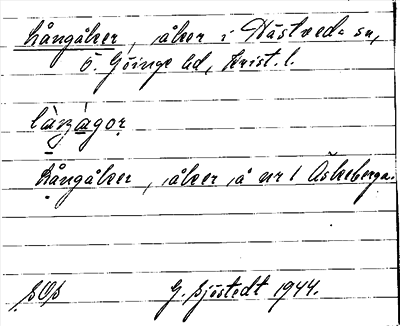 Långåker, åker i Hästveda sn,
Ö. Göinge hd, Krist. l.
låŋágor
Långåker, åker å nr 1 Äskeberga.
SOS G. Sjöstedt 1944.